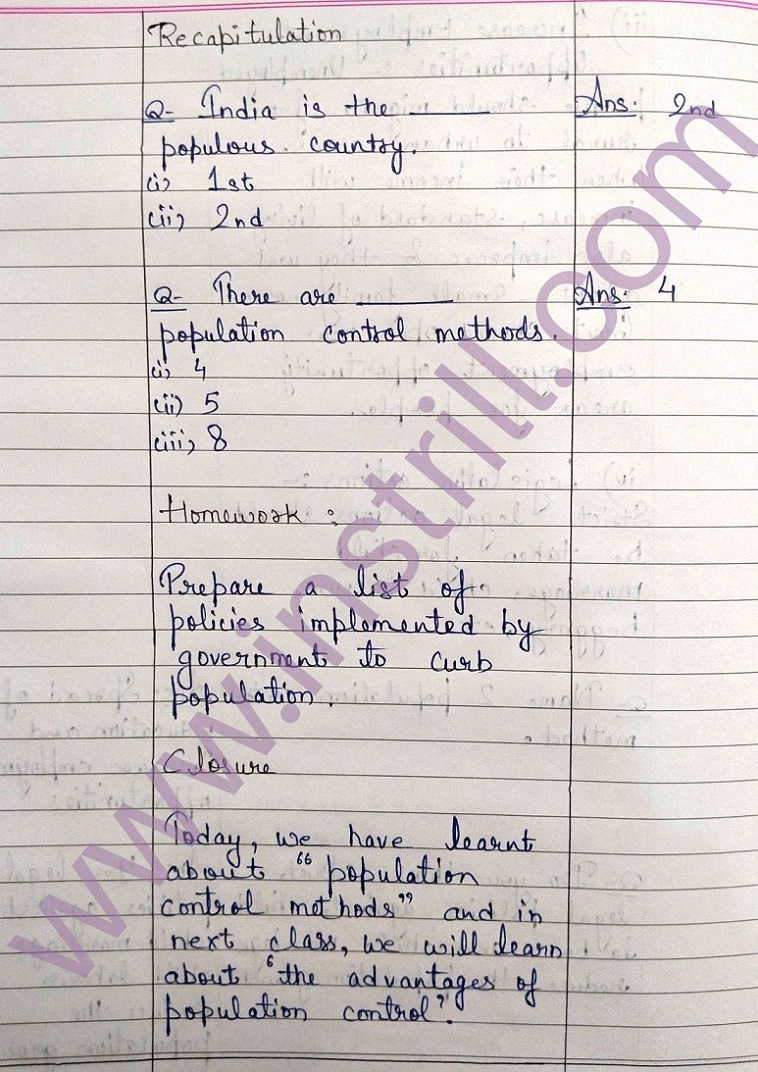 Recapitulation
Q- India is the ______ Ans. 2nd
populous country.
(i) 1st
(ii) 2nd
Q- There are ______ Ans. 4
population control methods.
(i) 4
(ii) 5
(iii) 8
Homework :
Prepare a list of
policies implemented by
government to curb
population.
Closure
Today, we have learnt
about "population
control methods" and in
next class, we will learn
about 'the advantages of
population control'.
www.instrill.com